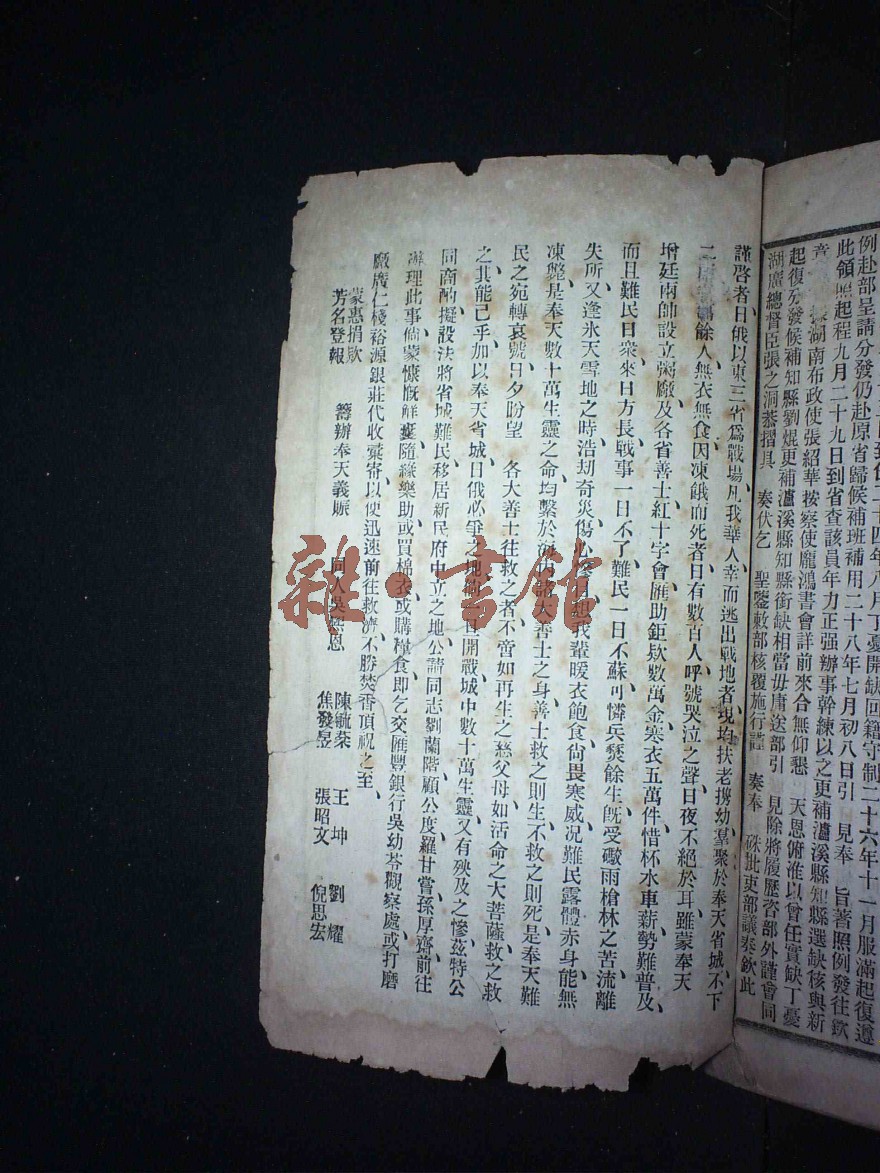 例赴部呈請分發仍赴原省歸候補班補用二十八年七月初八日引　見奉　旨著照例發往欽
此領照起程九月二十九日到省查該員年力正强辦事幹練以之更補瀘溪縣知縣選缺核與新
章　湖南布政使張紹華按察使龐鴻書會詳前來合無仰懇　天恩俯准以曾任實缺丁憂
起復分發候補知縣劉焜更補瀘溪縣知縣銜缺相當毋庸送部引　見除將履歷咨部外謹會同
湖廣總督臣張之洞恭摺具　奏伏乞　聖鑒敕部核覆施行謹　奏奉　硃批吏部議奏欽此
謹啓者日俄以東三省爲戰場凡我華人幸而逃出戰地者現均扶老携幼羣聚於奉天省城不下
二萬餘人無衣無食因凍餓而死者日有數百人呼號哭泣之聲日夜不絕於耳雖蒙奉天
增廷兩帥設立粥廠及各省善士紅十字會匯助鉅欵數萬金寒衣五萬件惜杯水車薪勢難普及
而且難民日衆來日方長戰事一日不了難民一日不蘇可憐兵燹餘生旣受礮雨槍林之苦流離
失所又逢氷天雪地之時浩劫奇災傷心我輩暖衣飽食尙畏寒威况難民露體赤身能無
凍斃是奉天數十萬生靈之命均繫於海內諸大善士之身善士救之則生不救之則死是奉天難
民之宛轉哀號日夕盼望　各大善士往救之者不啻如再生之慈父母如活命之大菩薩救之救
之其能已乎加以奉天省城日俄必爭之地一日開戰城中數十萬生靈又有殃及之慘茲特公
同商酌擬設法將省城難民移居新民府中立之地公請同志劉蘭階顧公度羅甘嘗孫厚齋前往
辦理此事倘蒙慷慨解囊隨緣樂助或買棉衣或購糧食即乞交匯豐銀行吳幼苓觀察處或打磨
廠廣仁棧裕源銀莊代收彙寄以便迅速前往救濟不勝焚香頂祝之至
蒙惠捐欵
芳名登報
籌辦奉天義賑　同人吳恩
陳毓棻　王坤　劉燿
焦發昱　張昭文　倪思宏